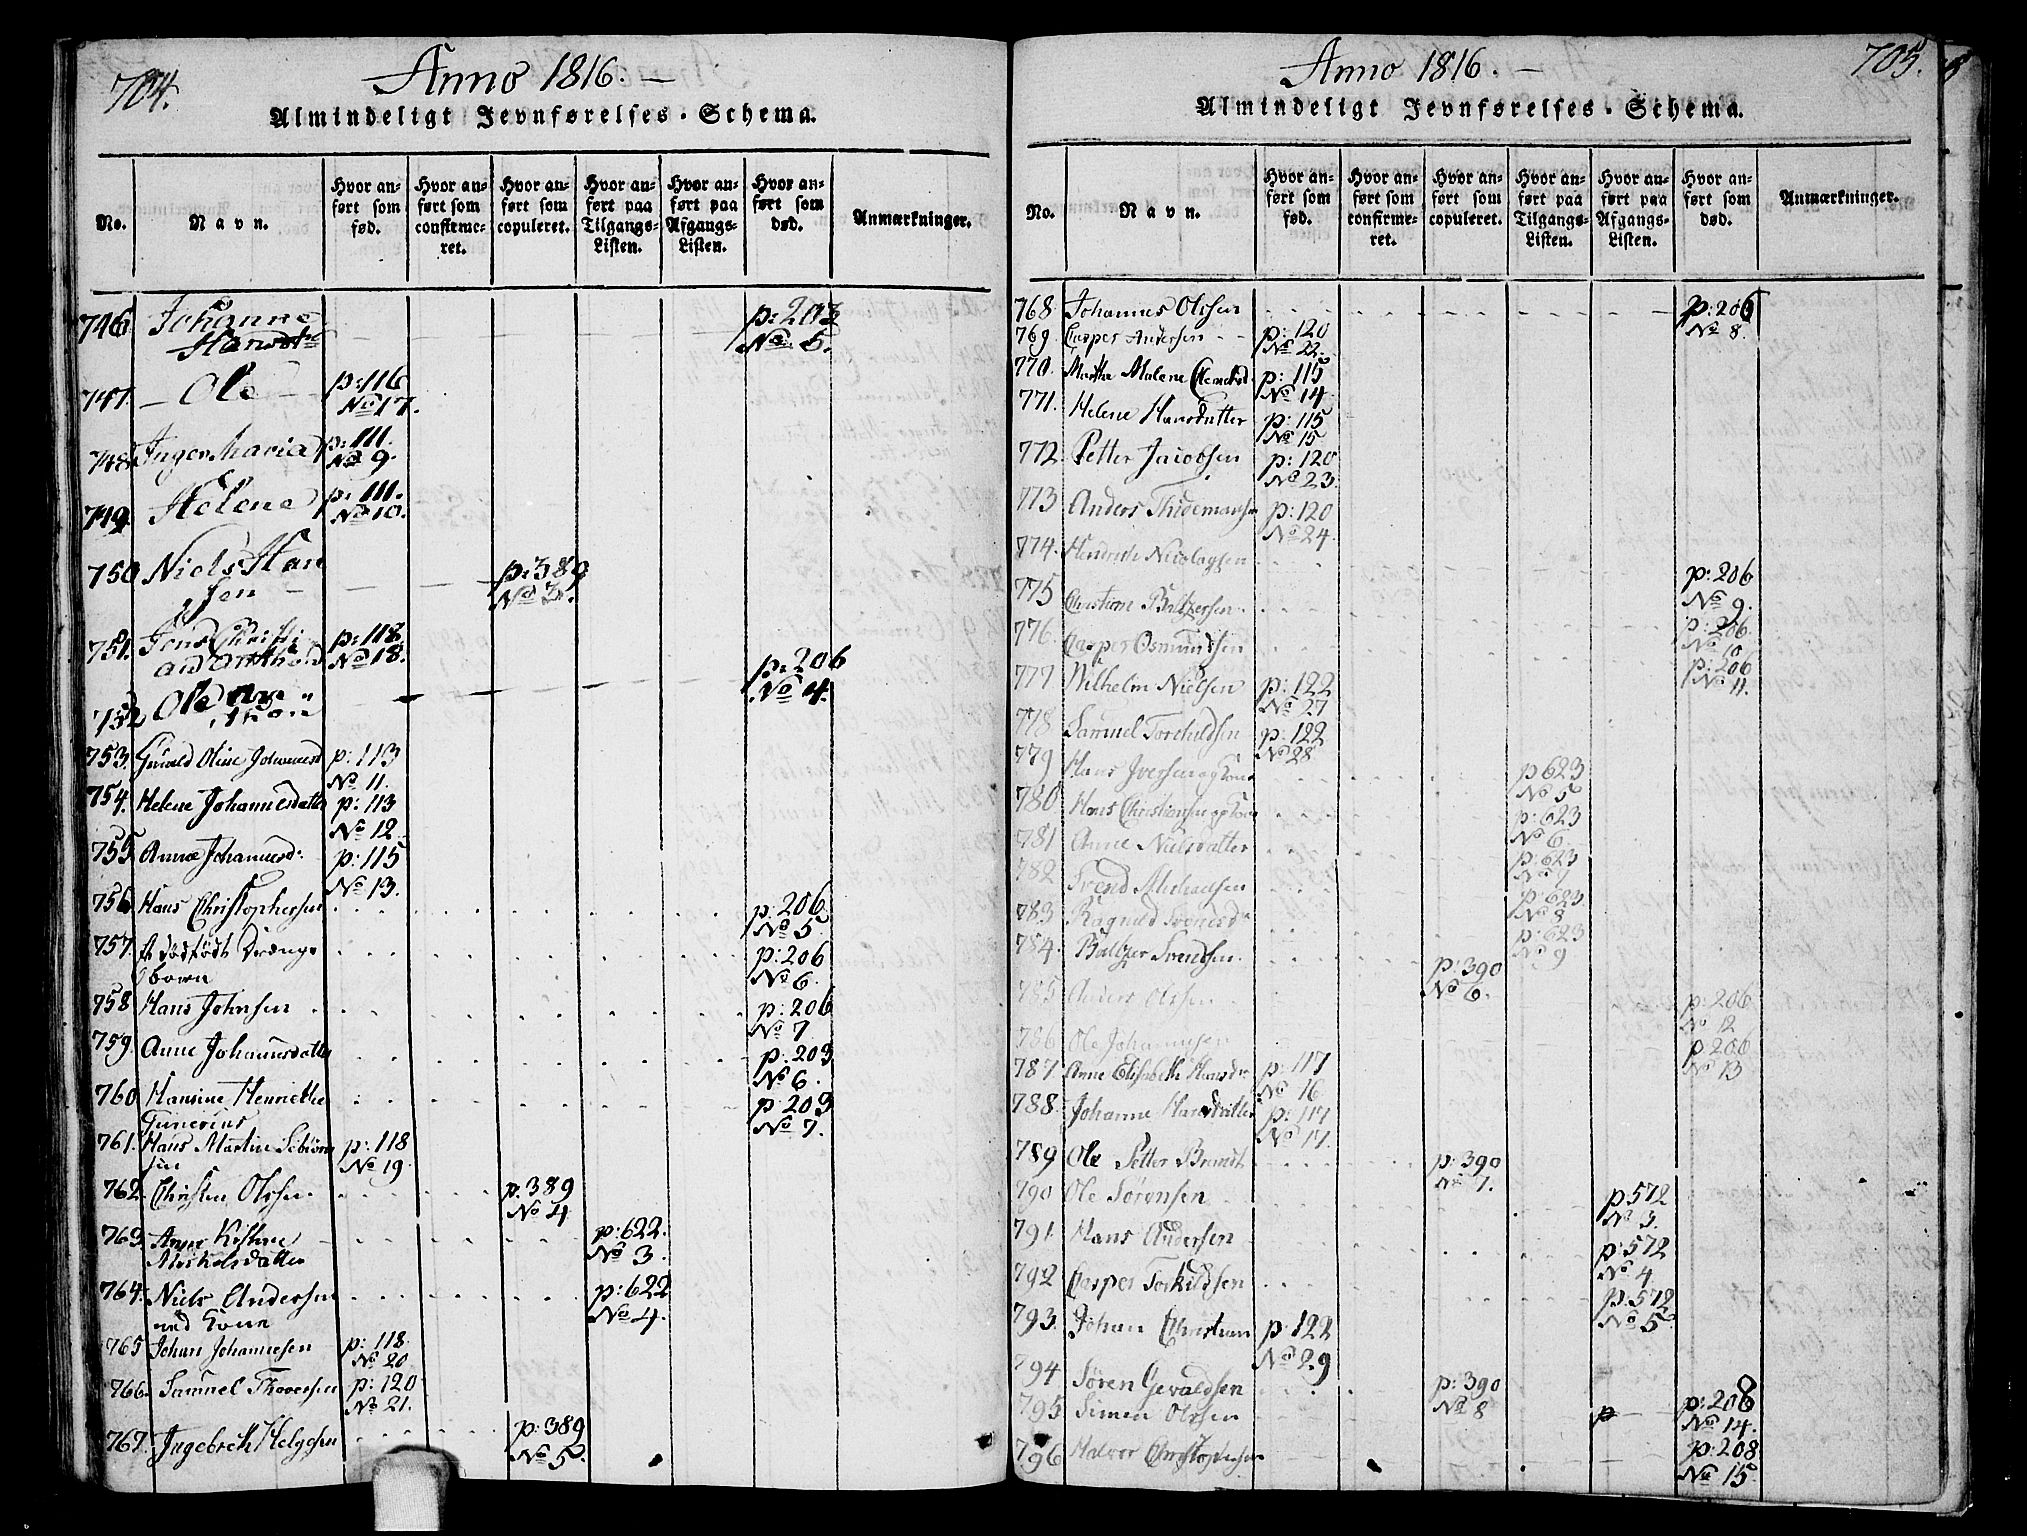 704.
Anno 1816. —
Almindeligt Jevnførelses-Schema.
No.
Navn.
Hvor an-
ført som
fød.
Hvor an-
ført som
confirme-
ret.
Hvor an-
ført som
copuleret.
Hvor an-
ført paa
Tilgangs-
Listen.
Hvor an-
ført paa
Afgangs-
Listen.
Hvor an-
ført som
død.
Anmærkninger.
746 Johanne p: 203
No 5.
747. — Ole — p: 116
No 17.
748. Inger Maria p: 111.
No 9.
749. Helene p: 111.
No 10.
750 Niels Han p: 389
sen No 3.
751. Jens Christi p: 118
No 18.
752 Ole p: 206
No 4.
753. Oline p: 113
No 11.
754. Helene Johannesdatter p: 113
No 12
755 Anne Johannesd: p: 115
No 13.
756. Hans Christophersen p: 206
No 5
757. Et dødfødt Drænge p: 206
barn No 6.
758 Hans Johnsen p: 206
No 7
759. Anne Johannesdatter p: 203
No 6.
760 Hansine Henriette p: 203
No 7.
761. Hans Martin p: 118
sen No 19
762. Christen Olssen p: 389
No 4
763. Anne p: 622
No 3.
764. Niels Andersen p: 622
med Kone No 4.
765 Johan Johannesen p: 118
No 20
766. Samuel Thoversen p: 120
No 21.
767. Ingebreth Helgesen p: 389
No 5.
705.
Anno 1816. —
Almindeligt Jevnførelses-Schema.
No.
Navn.
Hvor an-
ført som
fød.
Hvor an-
ført som
confirme-
ret.
Hvor an-
ført som
copuleret.
Hvor an-
ført paa
Tilgangs-
Listen.
Hvor an-
ført paa
Afgangs-
Listen.
Hvor an-
ført som
død.
Anmærkninger.
768 Johannes Olssen p: 206
No 8.
769. Casper Andersen p: 120
No 22.
770. Marthe Malene p: 115
No 14
771. Helene Hansdatter p: 115
No 15
772. Petter Jacobsen p: 120
No 23.
773 Anders Thidemansen p: 120
No 24.
774. Nicolaysen p: 206
No 9.
775 Christian Baltzersen p: 206.
No 10
776. Casper Osmundsen p: 206
No 11.
777 Wilhelm Nielsen p: 122
No 27
778 Samuel Torchildsen p: 122
No 28
779 Hans Iversen og Kone p 623
No 5
780 Hans Christiansen og Kone p: 623
No 6.
781 Anne Nielsdatter p: 623
No 7
782 Svend Michaelsen p: 623
No 8
783 Ragnild Svensd: p: 623
No 9
784. Baltzer Svendsen p: 390
No 6.
785 Anders Olssen p: 206
No 12
786 Ole Johannesen p: 206
No 13
787 Anne Elisabeth Hansdr p: 117
No 16
788. Johanne Hansdatter p: 117
No 17.
789 Ole Petter Brandt p: 390
No 7.
790 Ole Sørensen p: 572
No 3.
791. Hans Andersen p: 572
No 4
792 Casper Torkildsen p: 572
No 5
793. Johan Christian p: 122
No 29
794 Søren Gevaldsen p: 390
No 8
795 Simen Olssen p: 208
No 14.
796 Halvor Christophersen p: 208
No 15